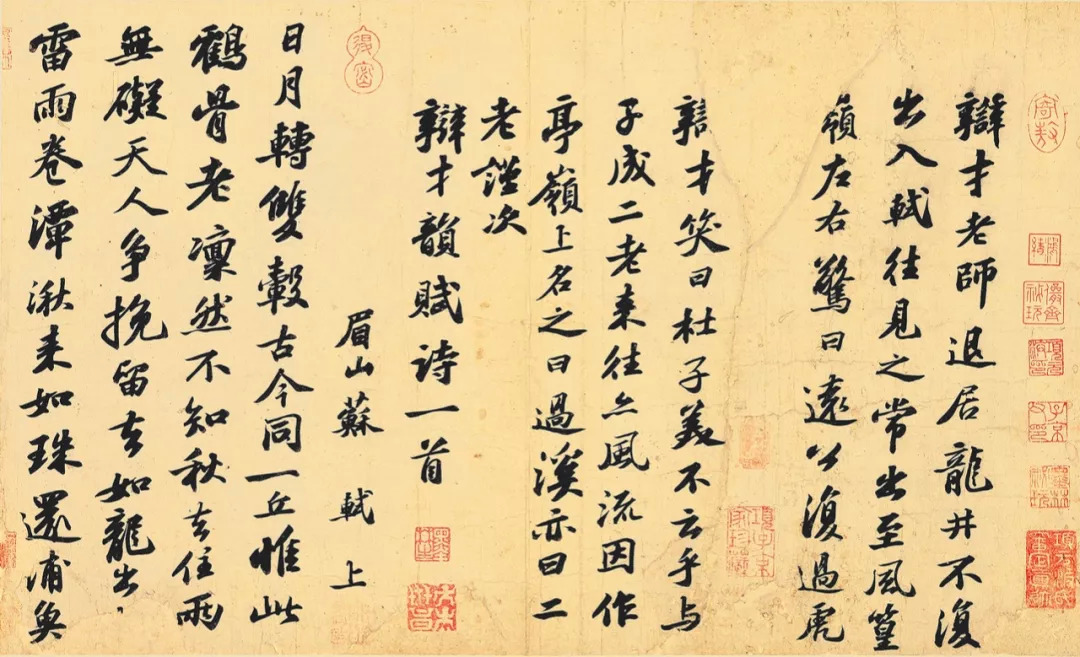 辯才老師退居龍井不復
出入軾往見之常出至風篁
嶺左右驚曰遠公復過虎
辯才笑曰杜子美不云乎与
子成二老来往亦風流因作
亭嶺上名之曰過溪亦曰二
老謹次
辯才韻賦诗一首
眉山蘇軾上
日月轉雙轂古今同一丘惟此
鶴骨老凜然不知秋去住兩
無礙天人争挽留去如龍出
雷雨卷潭湫来如珠還浦魚